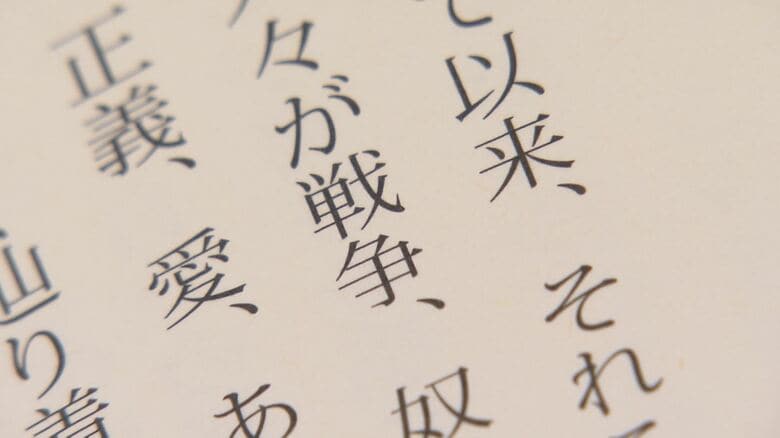 て以来、それ
々が戦争、奴
正義、愛、あ
辿り着